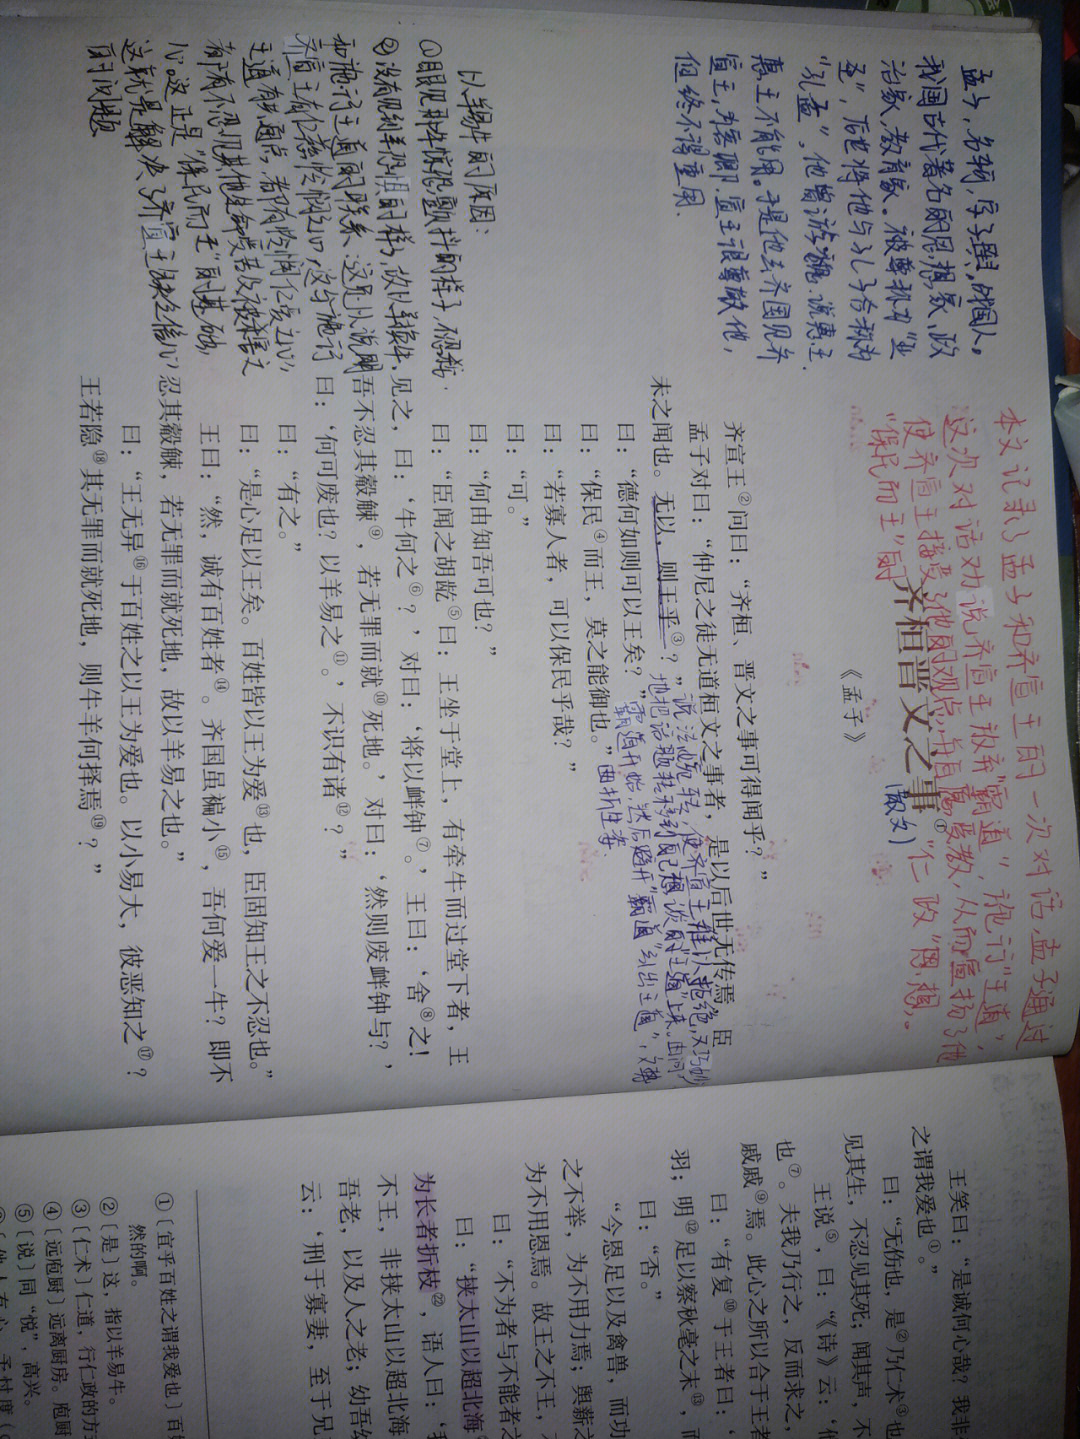 孟子，名轲，字子舆，邹国人。
我国古代著名的思想家、政
治家、教育家。被尊称为“亚
圣”，后世将他与孔子合称为
“孔孟”，他曾游魏，说惠王
惠王不能用。于是他去齐国见齐
宣王，为客卿，宣王很尊敬他，
但终不得重用．
本文记录了孟子和齐宣王的一次对话，孟子通过
这次对话劝说齐宣王放弃“霸道”，施行“王道”，
使齐宣王接受了他的观点
“保民而王”的
“仁政”思想。
齐桓晋文之事①
(散文)
《孟子》
齐宣王②问曰：“齐桓、晋文之事可得闻乎？”
孟子对曰：“仲尼之徒无道桓文之事者，是以后世无传焉，臣
未之闻也。无以，则王乎③？”
曰：“德何如则可以王矣？”
曰：“保民④而王，莫之能御也。”
曰：“若寡人者，可以保民乎哉？”
曰：“可。”
曰：“何由知吾可也？”
曰：“臣闻之胡龁⑤曰：王坐于堂上，有牵牛而过堂下者，王
见之，曰：‘牛何之⑥？’对曰：‘将以衅钟⑦。’王曰：‘舍⑧之！
吾不忍其觳觫⑨，若无罪而就⑩死地。’对曰：‘然则废衅钟与？’
曰：‘何可废也？以羊易之⑪。’不识有诸⑫？”
曰：“有之。”
曰：“是心足以王矣。百姓皆以王为爱⑬也，臣固知王之不忍也。”
王曰：“然，诚有百姓者⑭。齐国虽褊小⑮，吾何爱一牛？即不
忍其觳觫，若无罪而就死地，故以羊易之也。”
曰：“王无异⑯于百姓之以王为爱也。以小易大，彼恶知之⑰？
王若隐⑱其无罪而就死地，则牛羊何择焉⑲？”
说法婉转，使齐宣王难以拒绝，又巧妙
地把话题转移到自己想谈的“王道”上来。由问
霸道开始，然后避开“霸道”引出王道”，文章
曲折生姿．
以羊易牛的原因：
①眼见那牛惊恐颤抖的样子，不忍杀；
②没有见到羊恐惧的样子，故以羊换牛．
和施行王道的联系：这足以说明
齐宣王有仁慈怜悯之心，这与施行
王道有共通点，都有怜悯仁爱之心，
都有不忍见其他生命受苦及被杀害之
心。这正是“保民而王”的基础，
这就是解决了齐宣王缺乏信心
的问题
王笑曰：“是诚何心哉？我非
之谓我爱也①。”
曰：“无伤也，是②乃仁术③也
见其生，不忍见其死；闻其声，不
王说⑤，曰：“《诗》云：‘他
也⑦。夫我乃行之，反而求之，
戚戚⑨焉。此心之所以合于王者
曰：“有复⑩于王者曰：‘
羽；明⑫足以察秋毫之末⑬，而
曰：“否。”
“今恩足以及禽兽，而功
之不举，为不用力焉；舆薪之
为不用恩焉。故王之不王，
曰：“不为者与不能者之
曰：“挟太山以超北海
为长者折枝㉒，语人曰：‘我
不王，非挟太山以超北海
吾老，以及人之老；幼吾幼
云：‘刑于寡妻，至于兄
①〔宜乎百姓之谓我爱也〕百姓
然的啊。
②〔是〕这，指以羊易牛。
③〔仁术〕仁道，行仁政的方
④〔远庖厨〕远离厨房。庖厨
⑤〔说〕同“悦”，高兴。